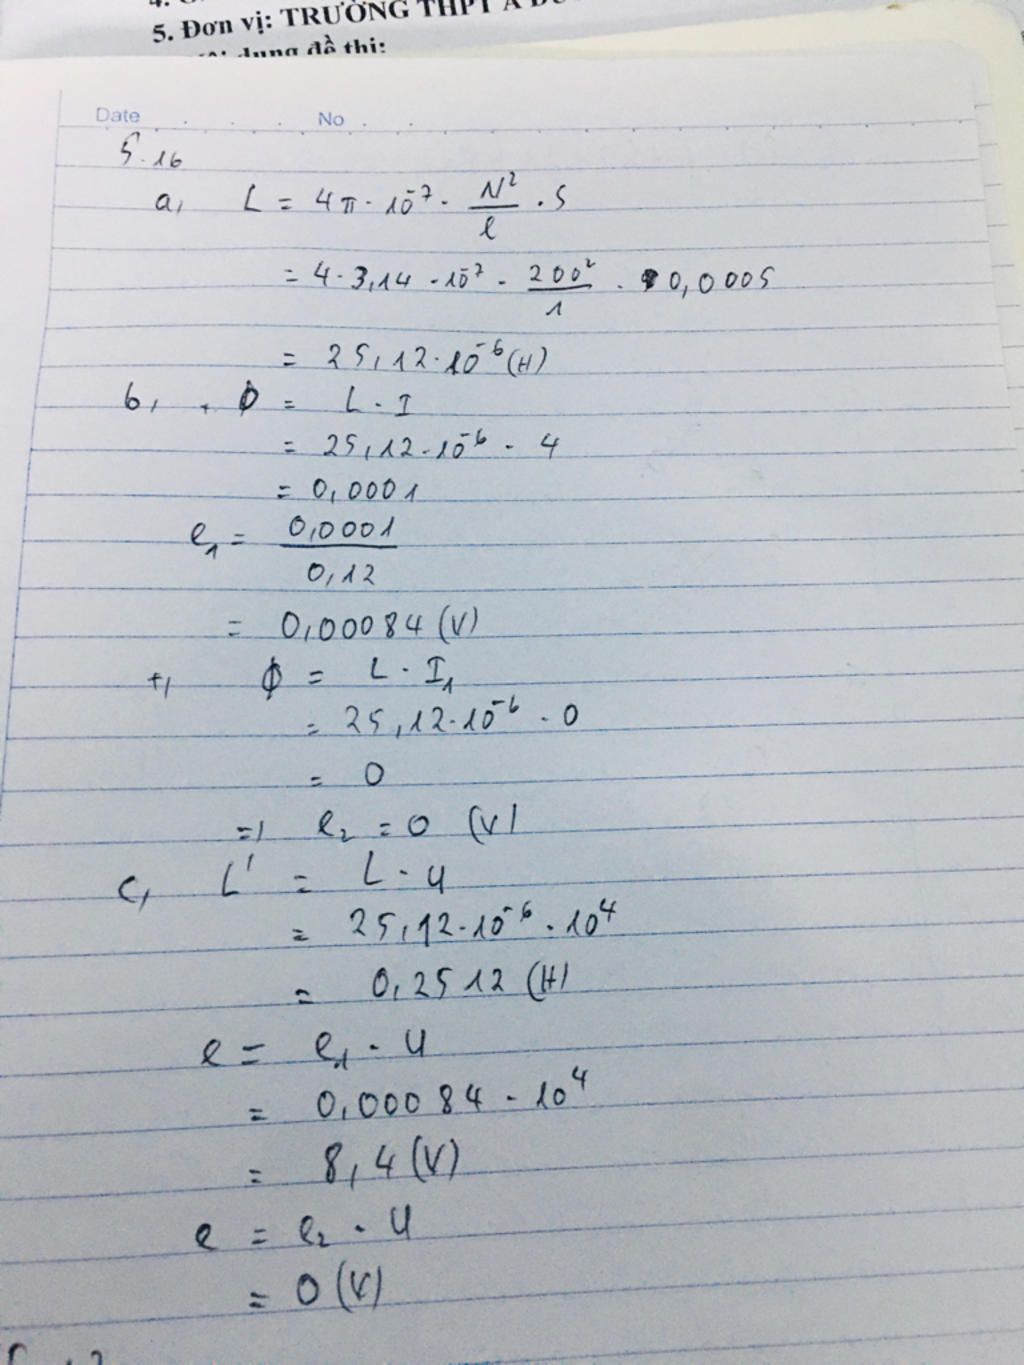 5. Đơn vị: TRƯỜNG THPT A
dung đề thi:
Date No
5.16
a, L = 4π · 10⁻⁷ · N²/l · S
= 4 · 3,14 · 10⁻⁷ · 200²/1 · 0,0005
= 25,12 · 10⁻⁶ (H)
b, + Φ = L · I
= 25,12 · 10⁻⁶ · 4
= 0,0001
e₁ = 0,0001/0,12
= 0,00084 (V)
+, Φ = L · I₁
= 25,12 · 10⁻⁶ · 0
= 0
=) e₂ = 0 (V)
c, L' = L · μ
= 25,12 · 10⁻⁶ · 10⁴
= 0,2512 (H)
e = e₁ · μ
= 0,00084 · 10⁴
= 8,4 (V)
e = e₂ · μ
= 0 (V)